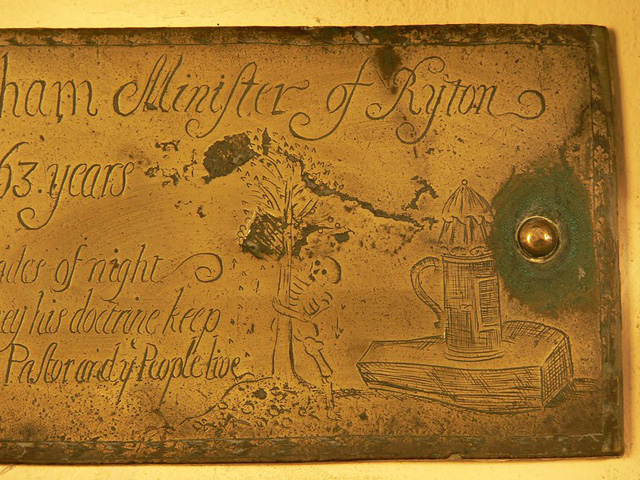 ham Miniſter of Ryton
63. years
ades of night
ey his doctrine keep
Paſtor and yͤ People live